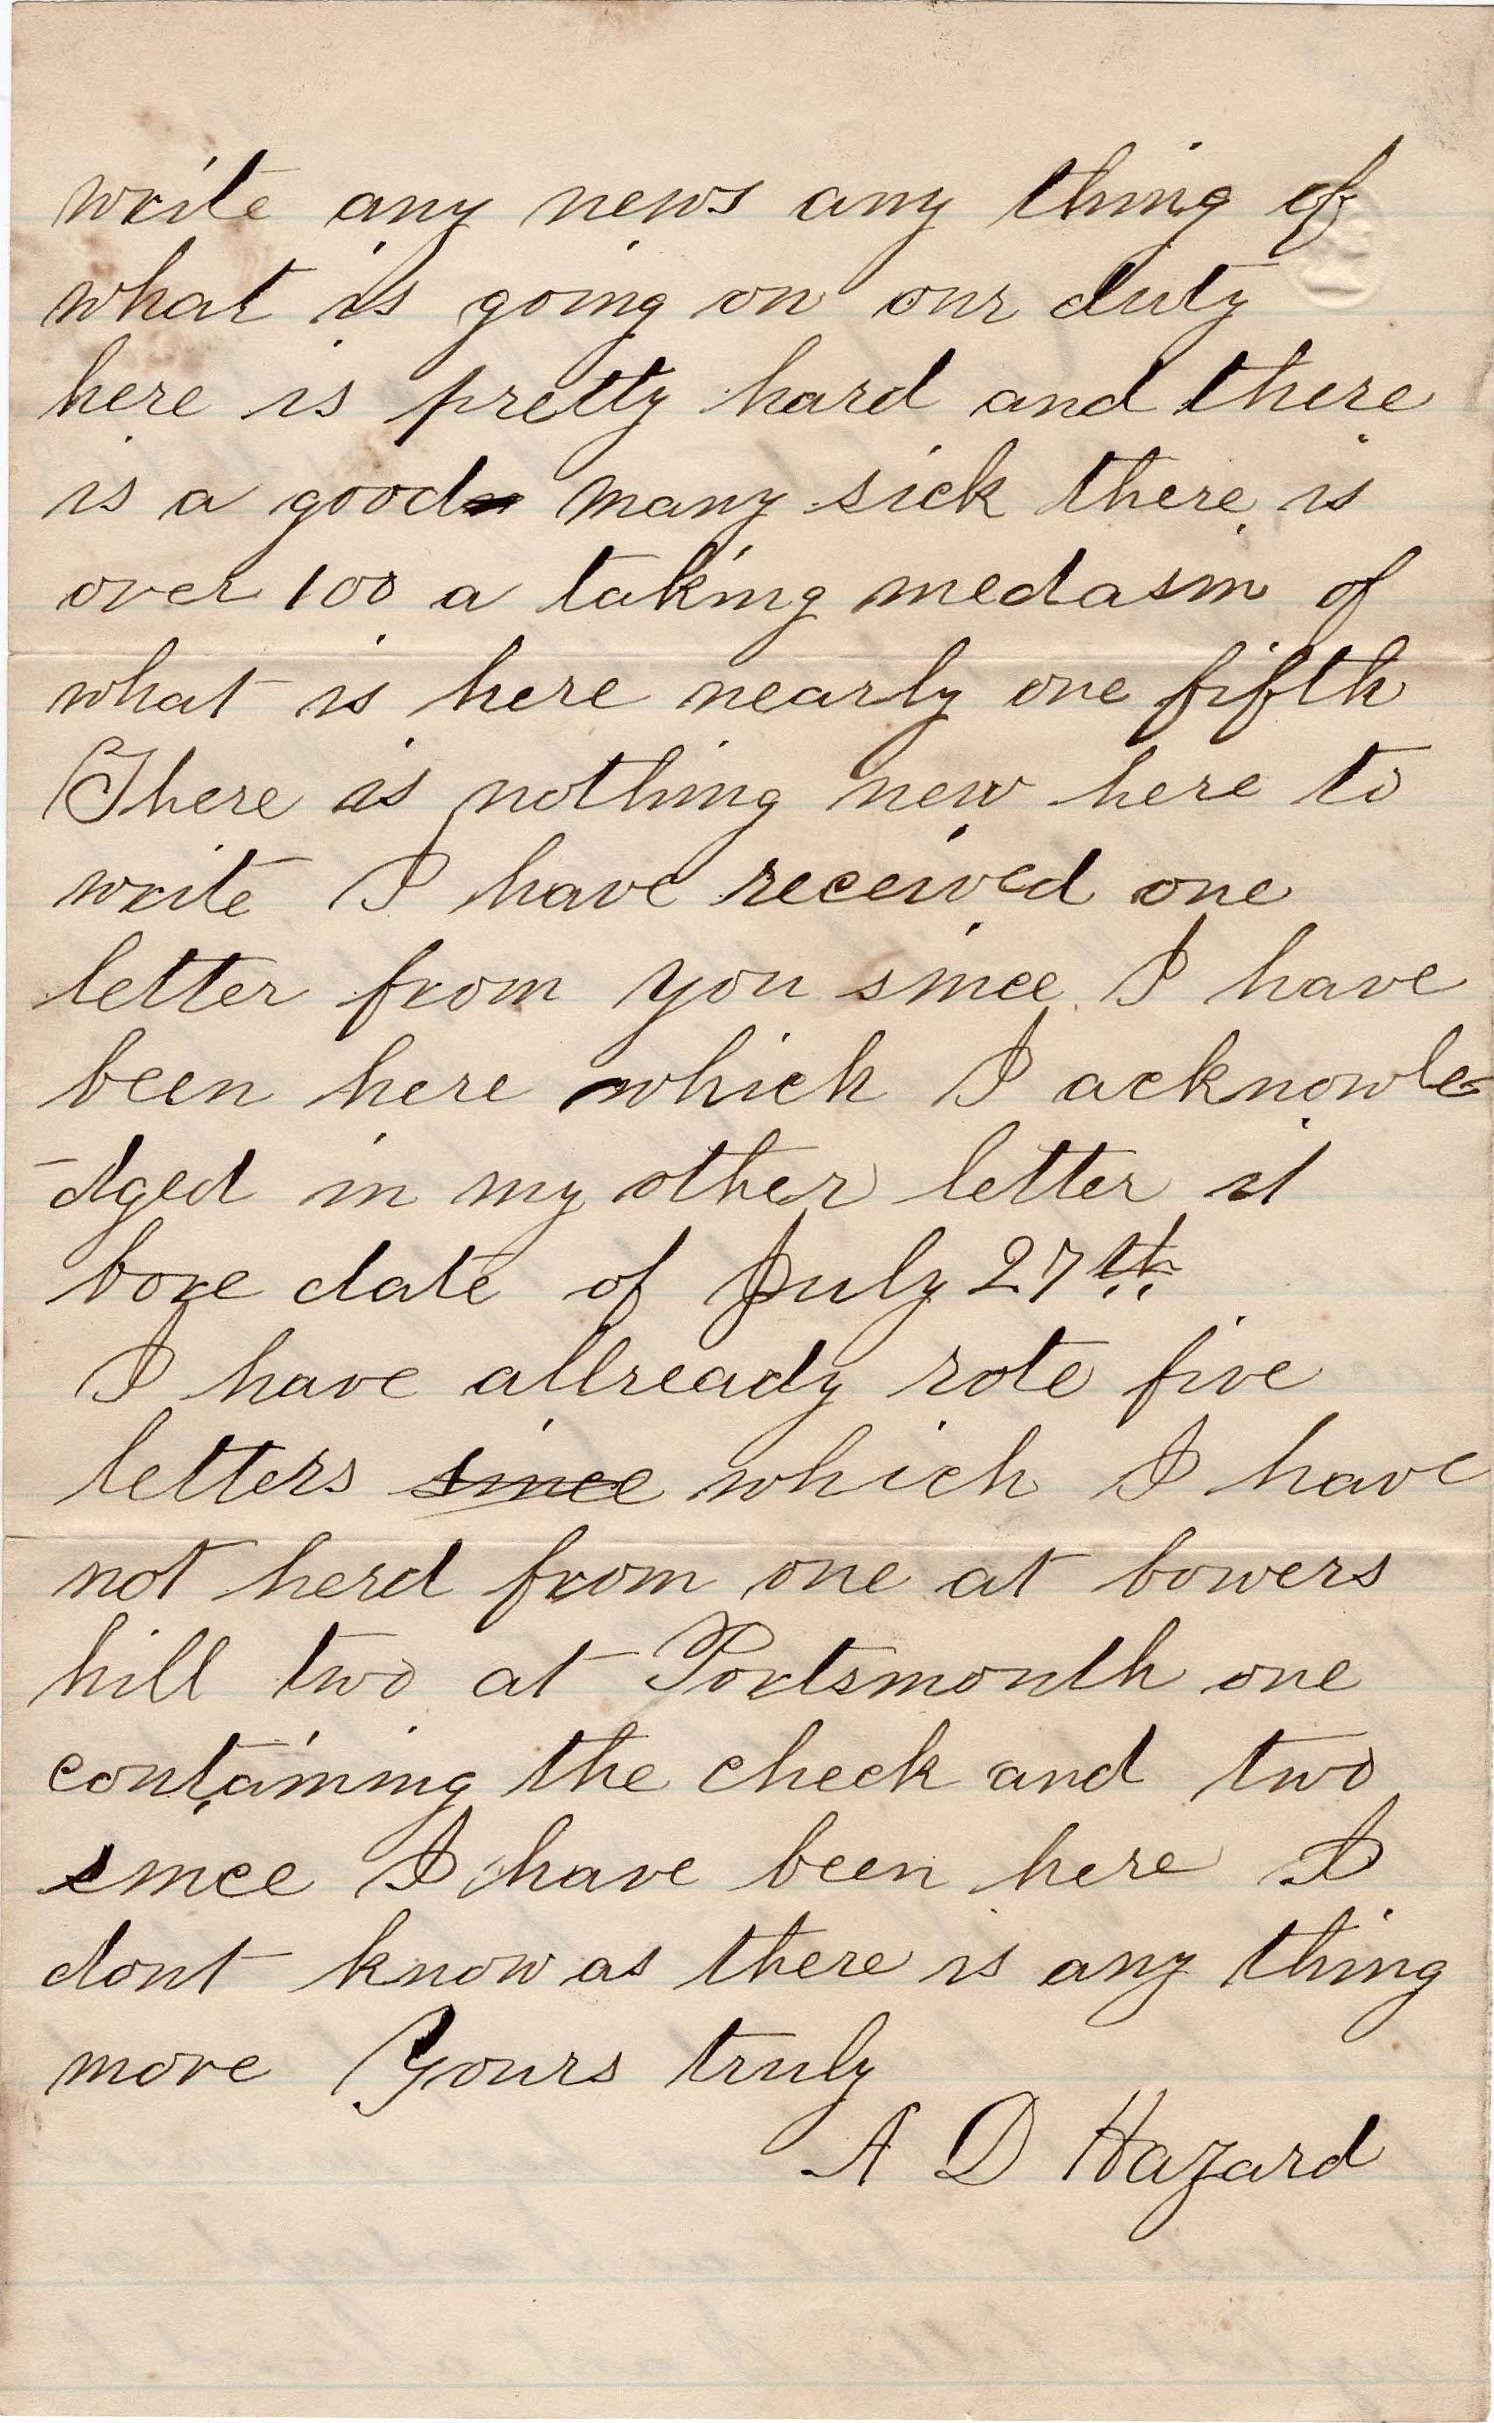 write any news any thing of
what is going on our duty
here is pretty hard and there
is a good many sick there is
over 100 a taking medasin of
what is here nearly one fifth
There is nothing new here to
write I have received one
letter from you since I have
been here which I acknowle-
-dged in my other letter it
bore date of July 27th
I have allready rote five
letters since which I have
not herd from one at bowers
hill two at Portsmouth one
containing the check and two
since I have been here I
dont know as there is any thing
more Yours truly
A D Hazard